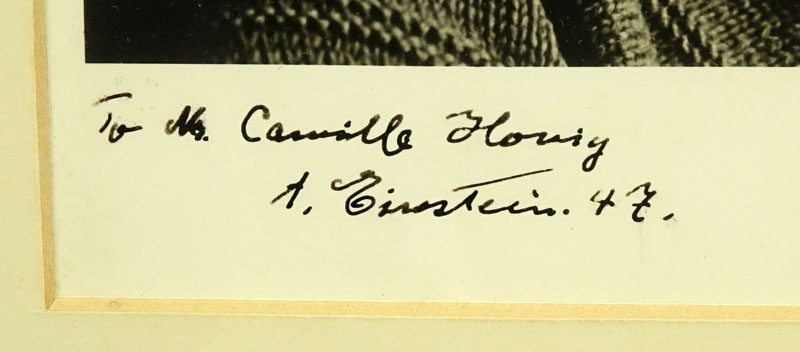 To Mr. Camille Honig
A. Einstein. 47.